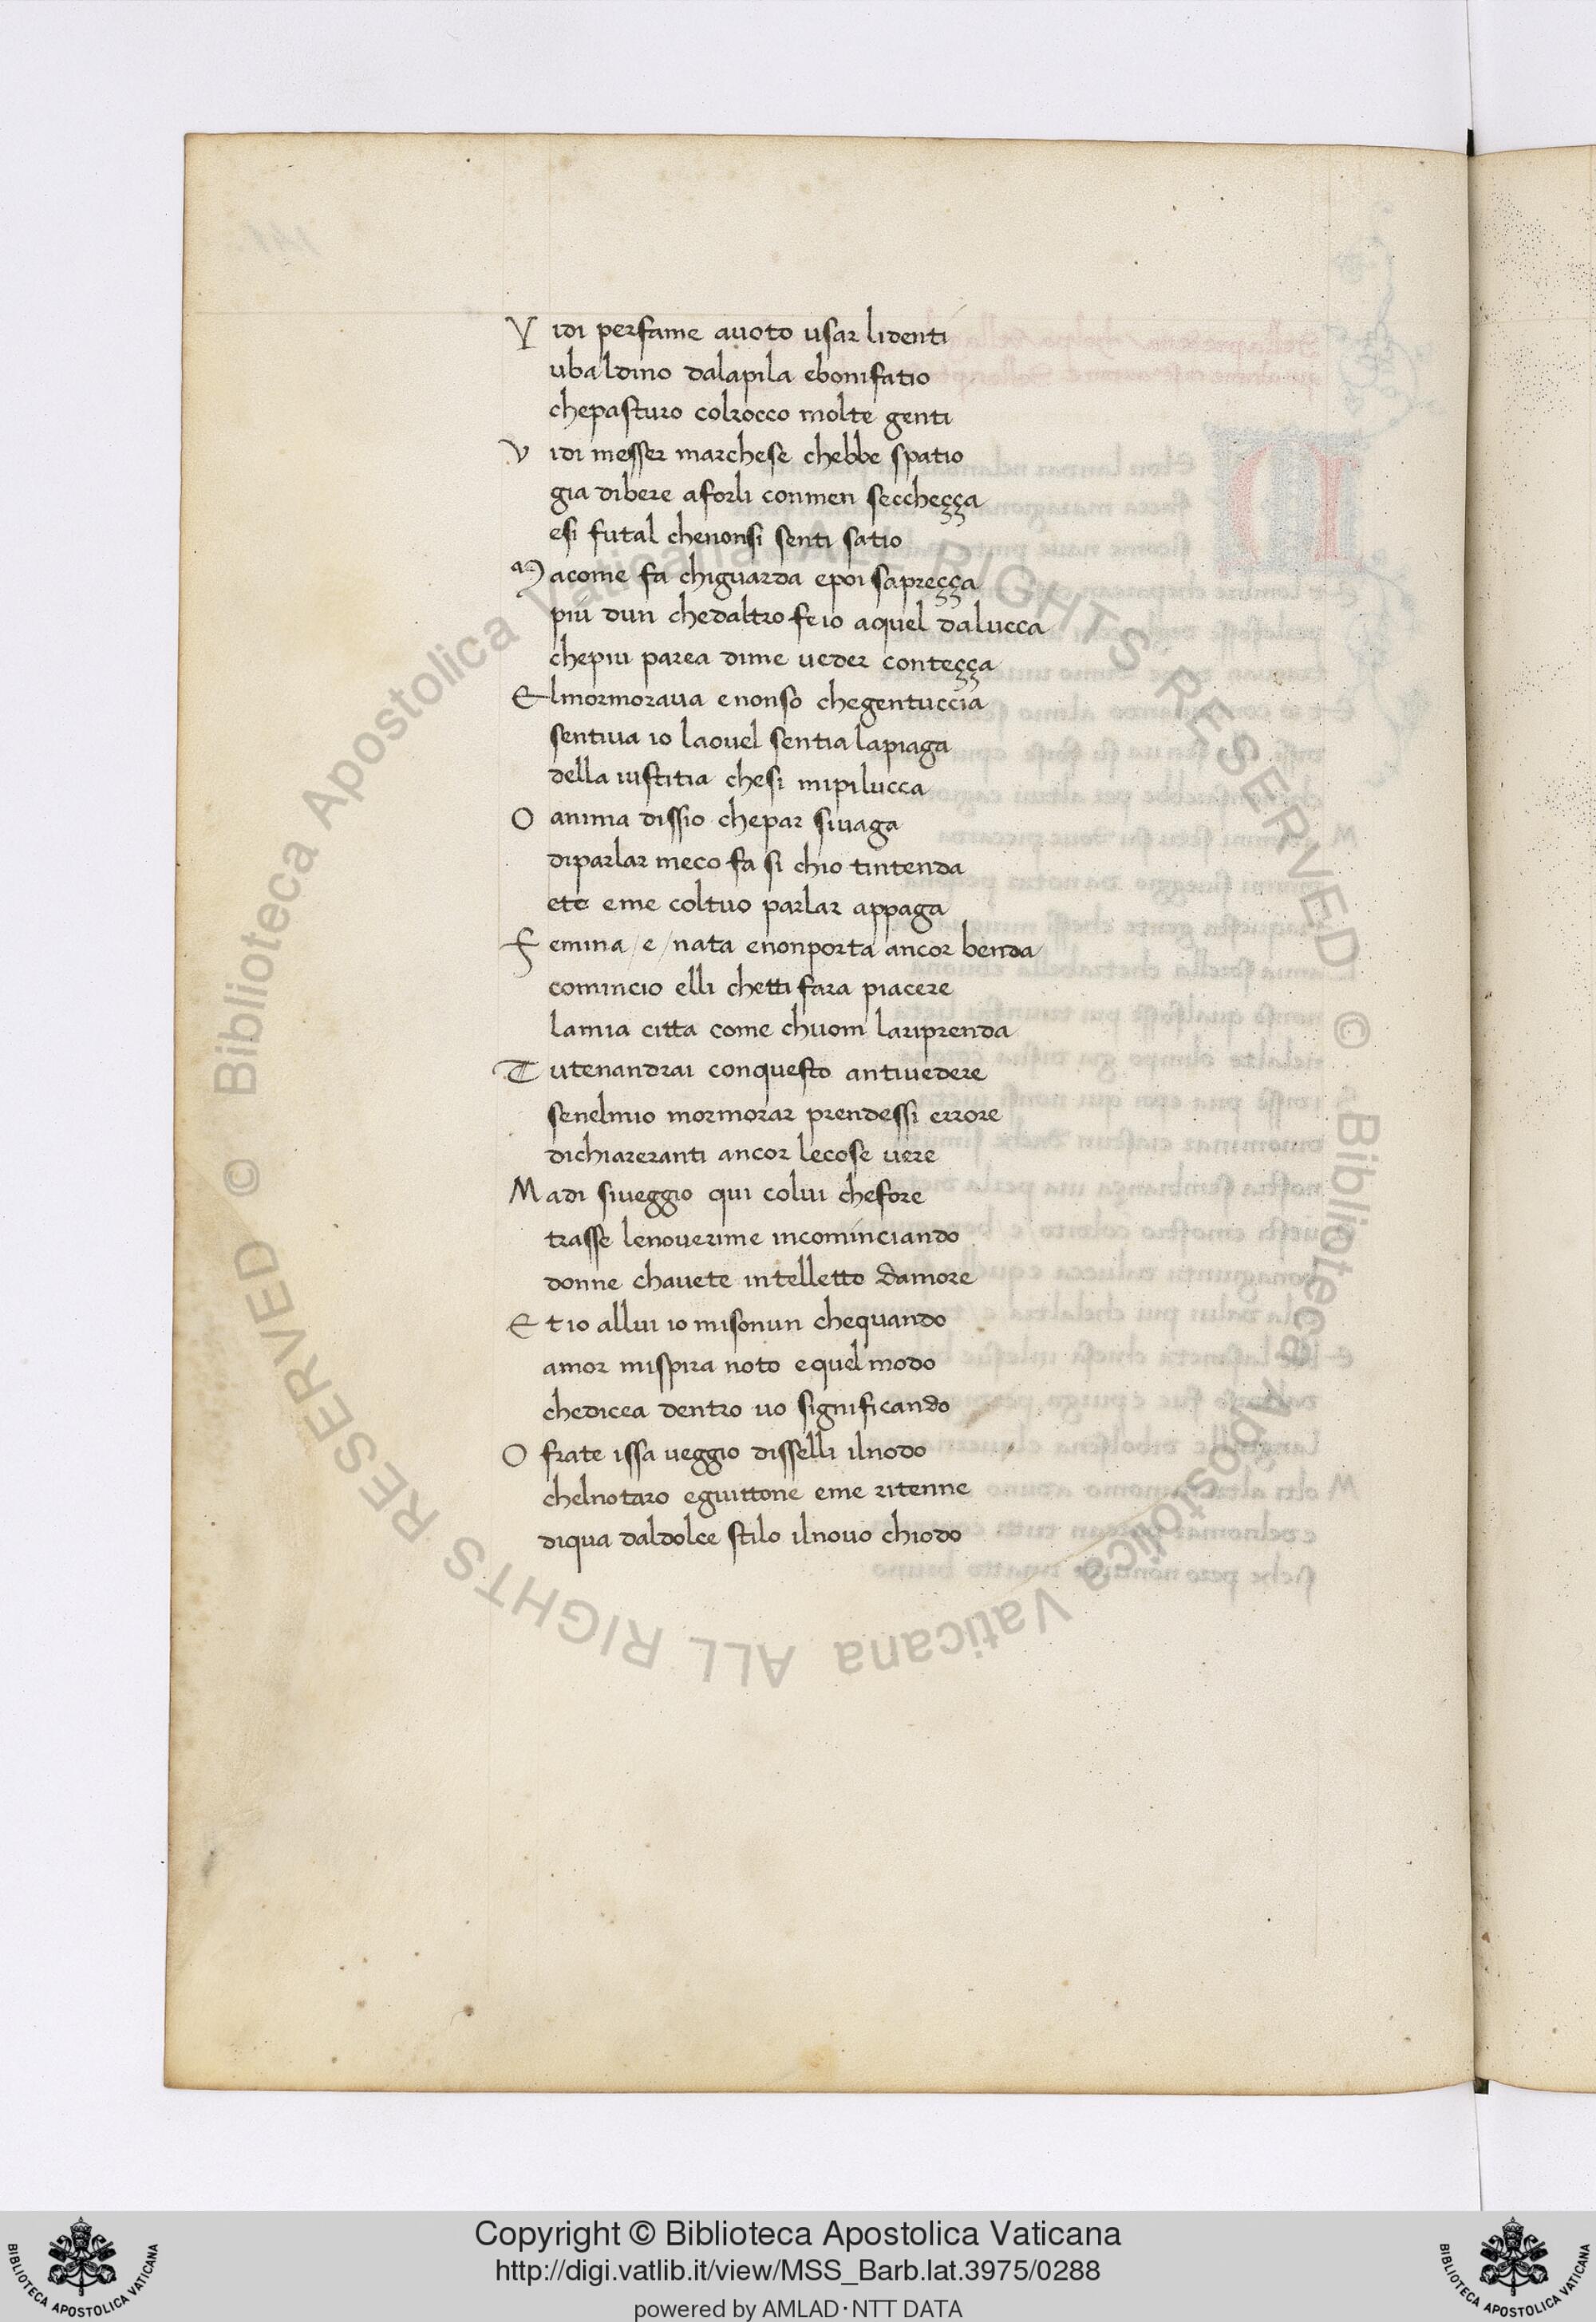 V idi perfame avoto usar lidenti
ubaldino dalapila ebonifatio
chepasturo colrocco molte genti
V idi messer marchese chebbe spatio
gia dibere aforli conmen seccheçça
esi futal chenonsi senti satio
M acome fa chiguarda epoi sapreçça
piu dun chedaltro feio aquel dalucca
chepiu parea dime veder conteçça
E lmormoraua enonso chegentuccia
sentiua io laouel sentia lapiaga
della iustitia chesi mipilucca
O anima dissio chepar siuaga
diparlar meco fa si chio tintenda
ete eme coltuo parlar appaga
F emina /e/ nata enonporta ancor benda
comincio elli chetti fara piacere
lamia citta come chuom lariprenda
T utenandrai conquesto antiuedere
senelmio mormorar prendessi errore
dichiareranti ancor lecose uere
M adi siueggio qui colui chefore
trasse lenouerime incominciando
donne chauete intelletto damore
E t io allui io misonun chequando
amor mispira noto equel modo
chedicea dentro uo significando
O frate issa ueggio disselli ilnodo
chelnotaro eguittone eme ritenne
diqua daldolce stilo ilnouo chiodo
© Biblioteca Apostolica Vaticana ALL RIGHTS RESERVED © Biblioteca Apostolica Vaticana ALL RIGHTS RESERVED
Copyright © Biblioteca Apostolica Vaticana
http://digi.vatlib.it/view/MSS_Barb.lat.3975/0288
powered by AMLAD·NTT DATA
BIBLIOTECA APOSTOLICA VATICANA
BIBLIOTECA APOSTOLICA VATICANA